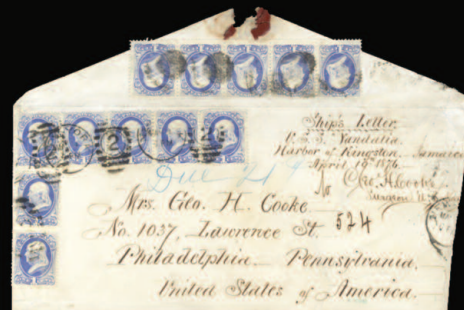 Ship's Letter
U.S.S. Vandalia
Harbor of Kingston, Jamaica
April 13th 1876
Geo. H. Cooke
Surgeon U.S.
Due 21
Mrs. Geo. H. Cooke
No. 1037, Lawrence St. 524
Philadelphia Pennsylvania.
United States of America.